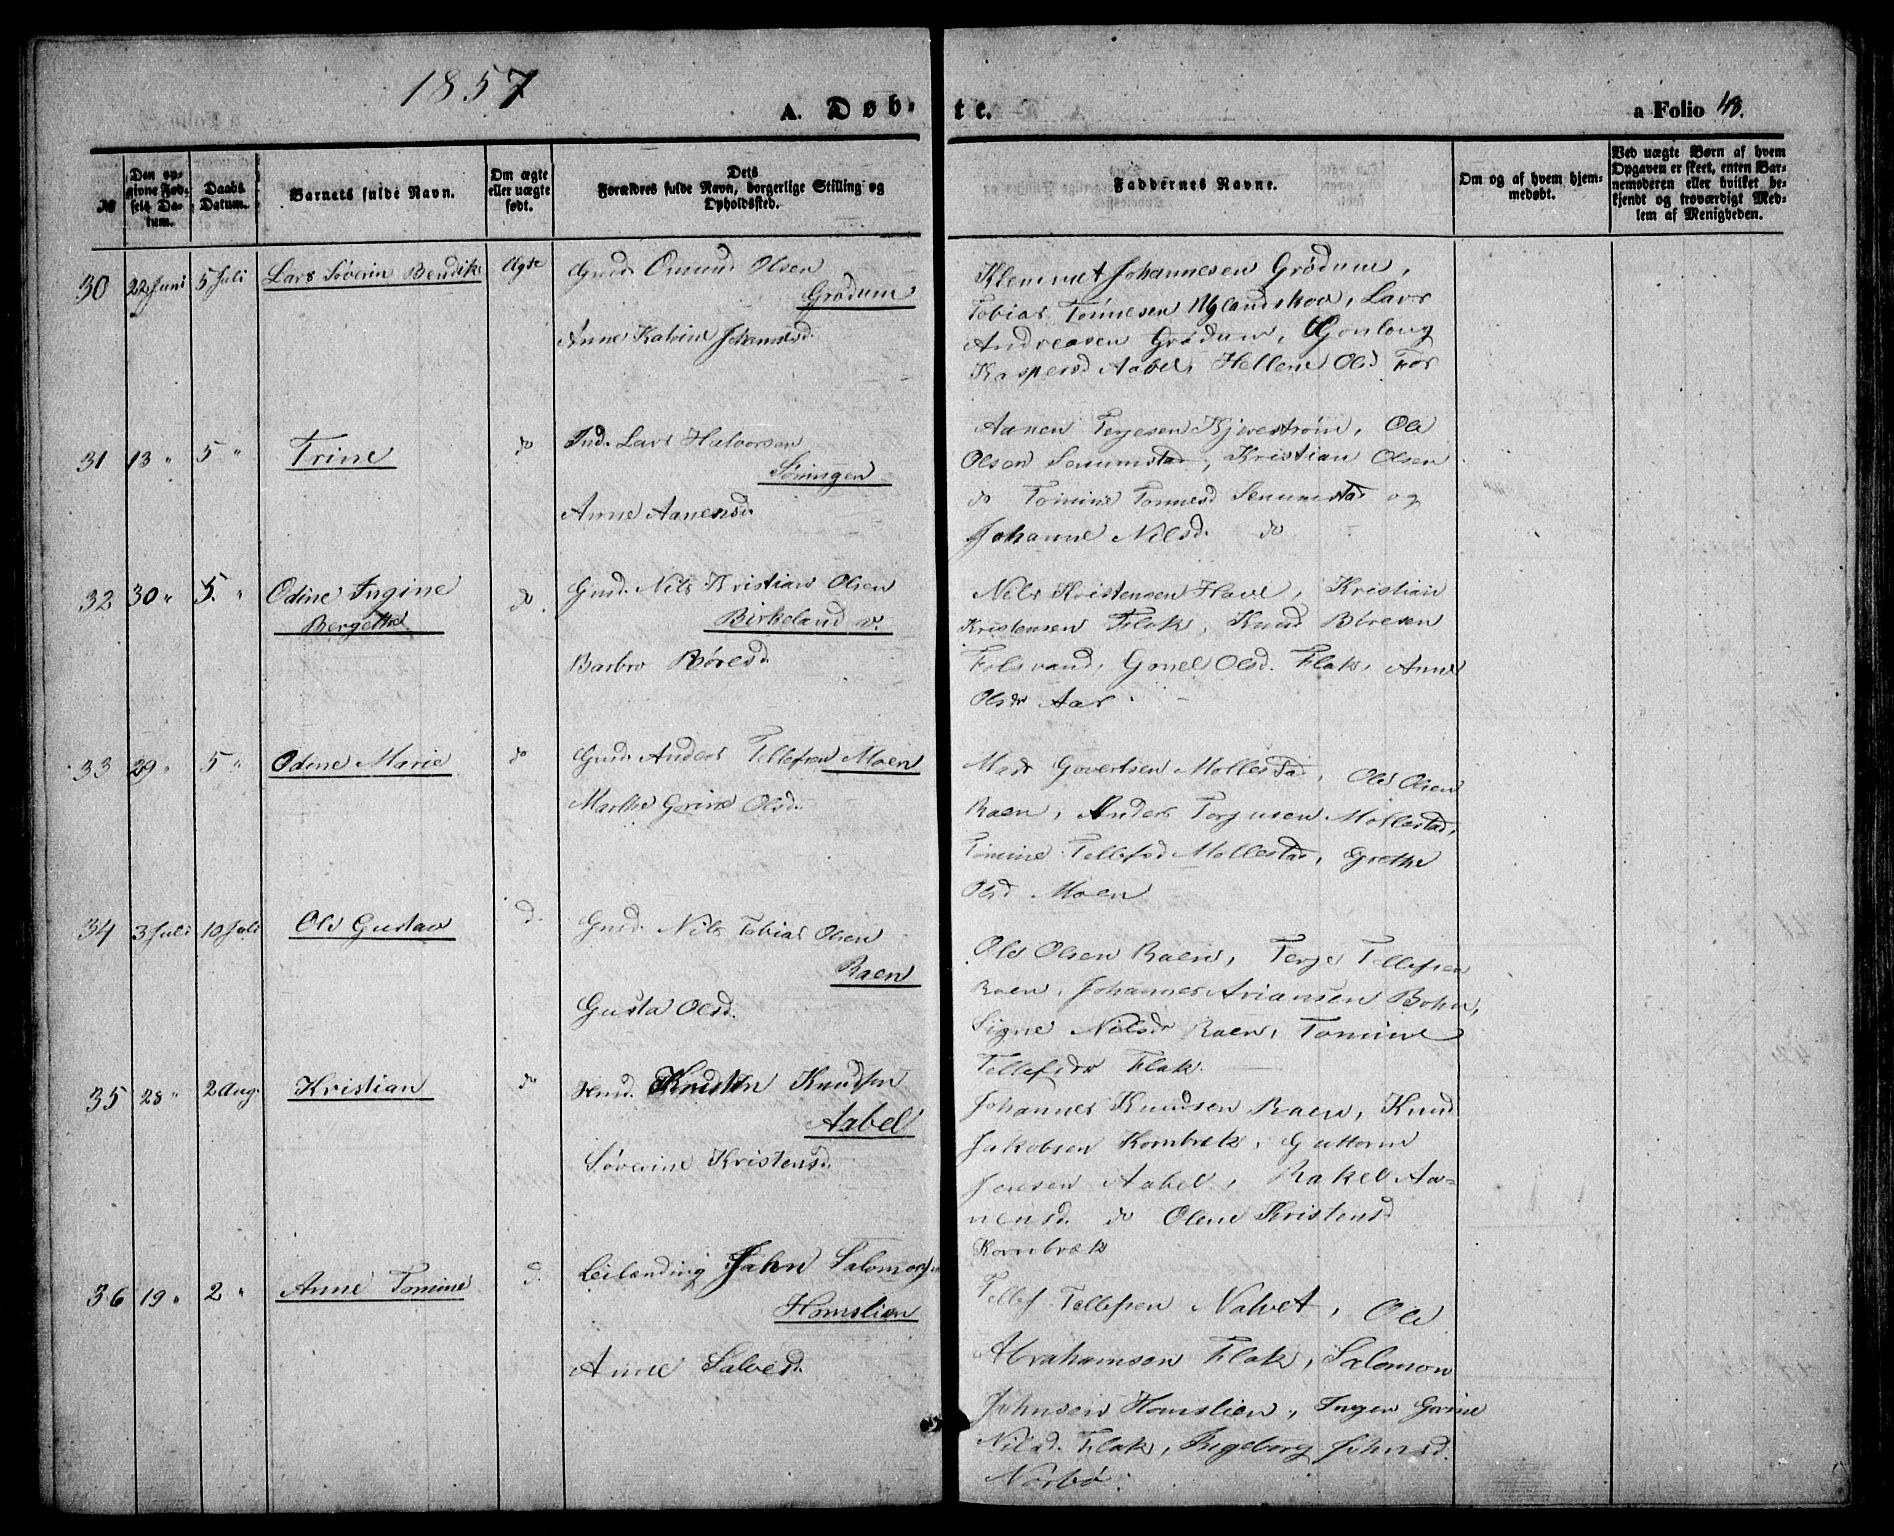 1857
A. Døbte.
a Folio 48.
№
Den opgivne Fødsels Datum.
Daabs Datum.
Barnets fulde Navn.
Om ægte eller uægte født.
Dets Forældres fulde Navn, borgerlige Stilling og Opholdssted.
Faddernes Navne.
Om og af hvem hjemmedøbt.
Ved uægte Børn af hvem Opgaven er skeet, enten Barnemoderen eller hvilket bekjendt og troværdigt Medlem af Menigheden.
30 22 Juni 5 Juli Lars Søverin Bendik Ægte Gmd. Omund Olsen
Grødum
Anne Katrine Johannesd.
Klemmet Johannesen Grødum,
Tobias Tønnesen Uglandskov, Lars
Andreasen Grødum, Gonloug
Kaspersd Aabel, Hellene Olsd Tor
31 13 " 5 " Trine do Ind. Lars Halvorsen
Anne Aanensd.
Aanen Terjesen Kjerrstrøm, Ole
Olsen Senumstad, Kristian Olsen
do Tomine Tønnesd Senumstad og
Johanne Nilsd. do
32 30 " 5. " Odine Ingine do. Gmd. Nils Kristian Olsen
Bergette
Birkeland v.
Barbro Børesd.
Nils Kristensen Have, Kristian
Kristensen Flak, Knud Børesen
Gonel Olsd. Flak, Anne
Olsdr Aas.
33 29 " 5 " Odine Marie do Gmd. Anders Tellefsen Moen
Marthe Gurine Olsd.
Mads Govertsen Mollestad, Ole Olsen
Raen, Anders Torjusen Mollestad,
Tomine Tellefsd Mollestad, Grethe
Olsd Moen
34 3 Juli 10 Juli Ole Gustav d. Gmd. Nils Tobias Olsen
Raen
Gusta Olsd.
Ole Olsen Raen, Terje Tellefsen
Raen, Johannes Ariansen Bohn,
Signe Nilsdr Raen, Tomine
Tellefsdr Flak.
35 28 " 2 Aug. Kristian do Kristen Knudsen
Aabel
Søverine Kristensd.
Johannes Knudsen Raen, Knud
Jakobsen Kornbrek, Guttorm
Jensen Aabel, Rakel Aa-
nensd. do Olene Kristensd
Kornbræk
36 19 " 2 " Anne Tomine d. Leilænding Jahn Salomonsen
Homslien
Anne Salvesd.
Tellef Tellefsen Natvet, Ole
Abrahamsen Flak, Salomon
Johnsen Homslien, Inger Gurine
Nilsd. Flak, Ingeborg Johnsd.
Norbø.